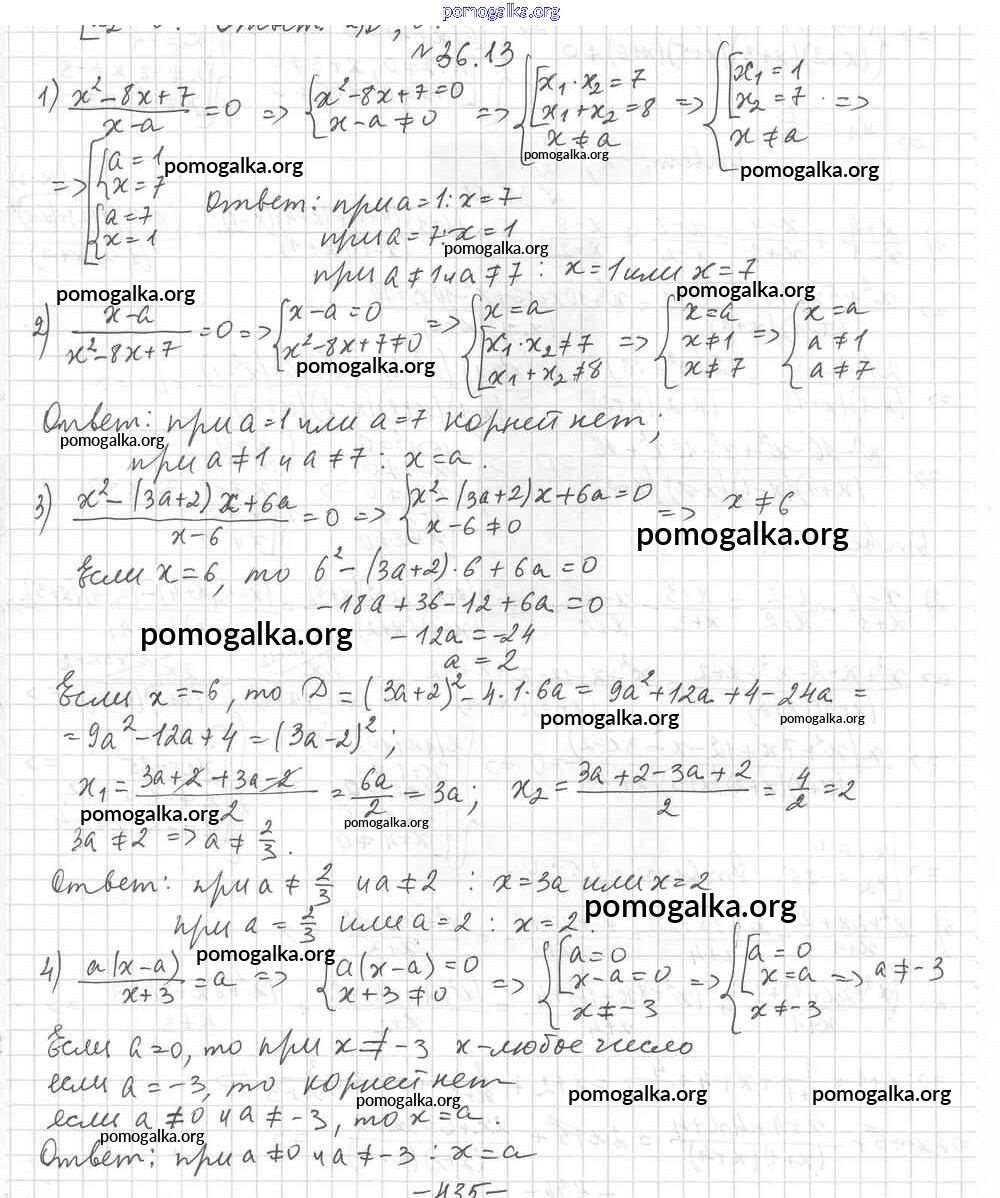 pomogalka.org
Ответ:
№36.13
1) x²-8x+7 / x-a = 0 => { x²-8x+7=0 ; x-a≠0 => { [ x₁·x₂=7 ; x₁+x₂=8 ; x≠a => { [ x₁=1 ; x₂=7 ; x≠a =>
pomogalka.org pomogalka.org pomogalka.org
=> [ { a=1 ; x=7 ; { a=7 ; x=1
Ответ: при a=1: x=7
при a=7: x=1
pomogalka.org
при a≠1 и a≠7: x=1 или x=7
pomogalka.org pomogalka.org
2) x-a / x²-8x+7 = 0 => { x-a=0 ; x²-8x+7≠0 => { x=a ; [ x₁·x₂≠7 ; x₁+x₂≠8 => { x=a ; x≠1 ; x≠7 => { x=a ; a≠1 ; a≠7
pomogalka.org
Ответ: при a=1 или a=7 корней нет;
pomogalka.org
при a≠1 и a≠7: x=a.
3) x²-(3a+2)x+6a / x-6 = 0 => { x²-(3a+2)x+6a=0 ; x-6≠0 => x≠6
pomogalka.org
Если x=6, то 6²-(3a+2)·6+6a=0
-18a+36-12+6a=0
pomogalka.org
-12a=-24
a=2
Если x=-6, то D=(3a+2)²-4·1·6a=9a²+12a+4-24a=
pomogalka.org pomogalka.org
=9a²-12a+4=(3a-2)²;
x₁= 3a+2+3a-2 / 2 = 6a / 2 = 3a; x₂= 3a+2-3a+2 / 2 = 4 / 2 = 2
pomogalka.org pomogalka.org
3a≠2 => a≠2/3.
Ответ: при a≠2/3 и a≠2: x=3a или x=2
pomogalka.org
при a=2/3 или a=2: x=2.
pomogalka.org
4) a(x-a) / x+3 = a => { a(x-a)=0 ; x+3≠0 => { [ a=0 ; x-a=0 ; x≠-3 => { [ a=0 ; x=a ; x≠-3 => a≠-3
Если a=0, то при x≠-3 x-любое число
если a=-3, то корней нет
pomogalka.org pomogalka.org pomogalka.org
если a≠0 и a≠-3, то x=a.
pomogalka.org
Ответ: при a≠0 и a≠-3: x=a
-435-